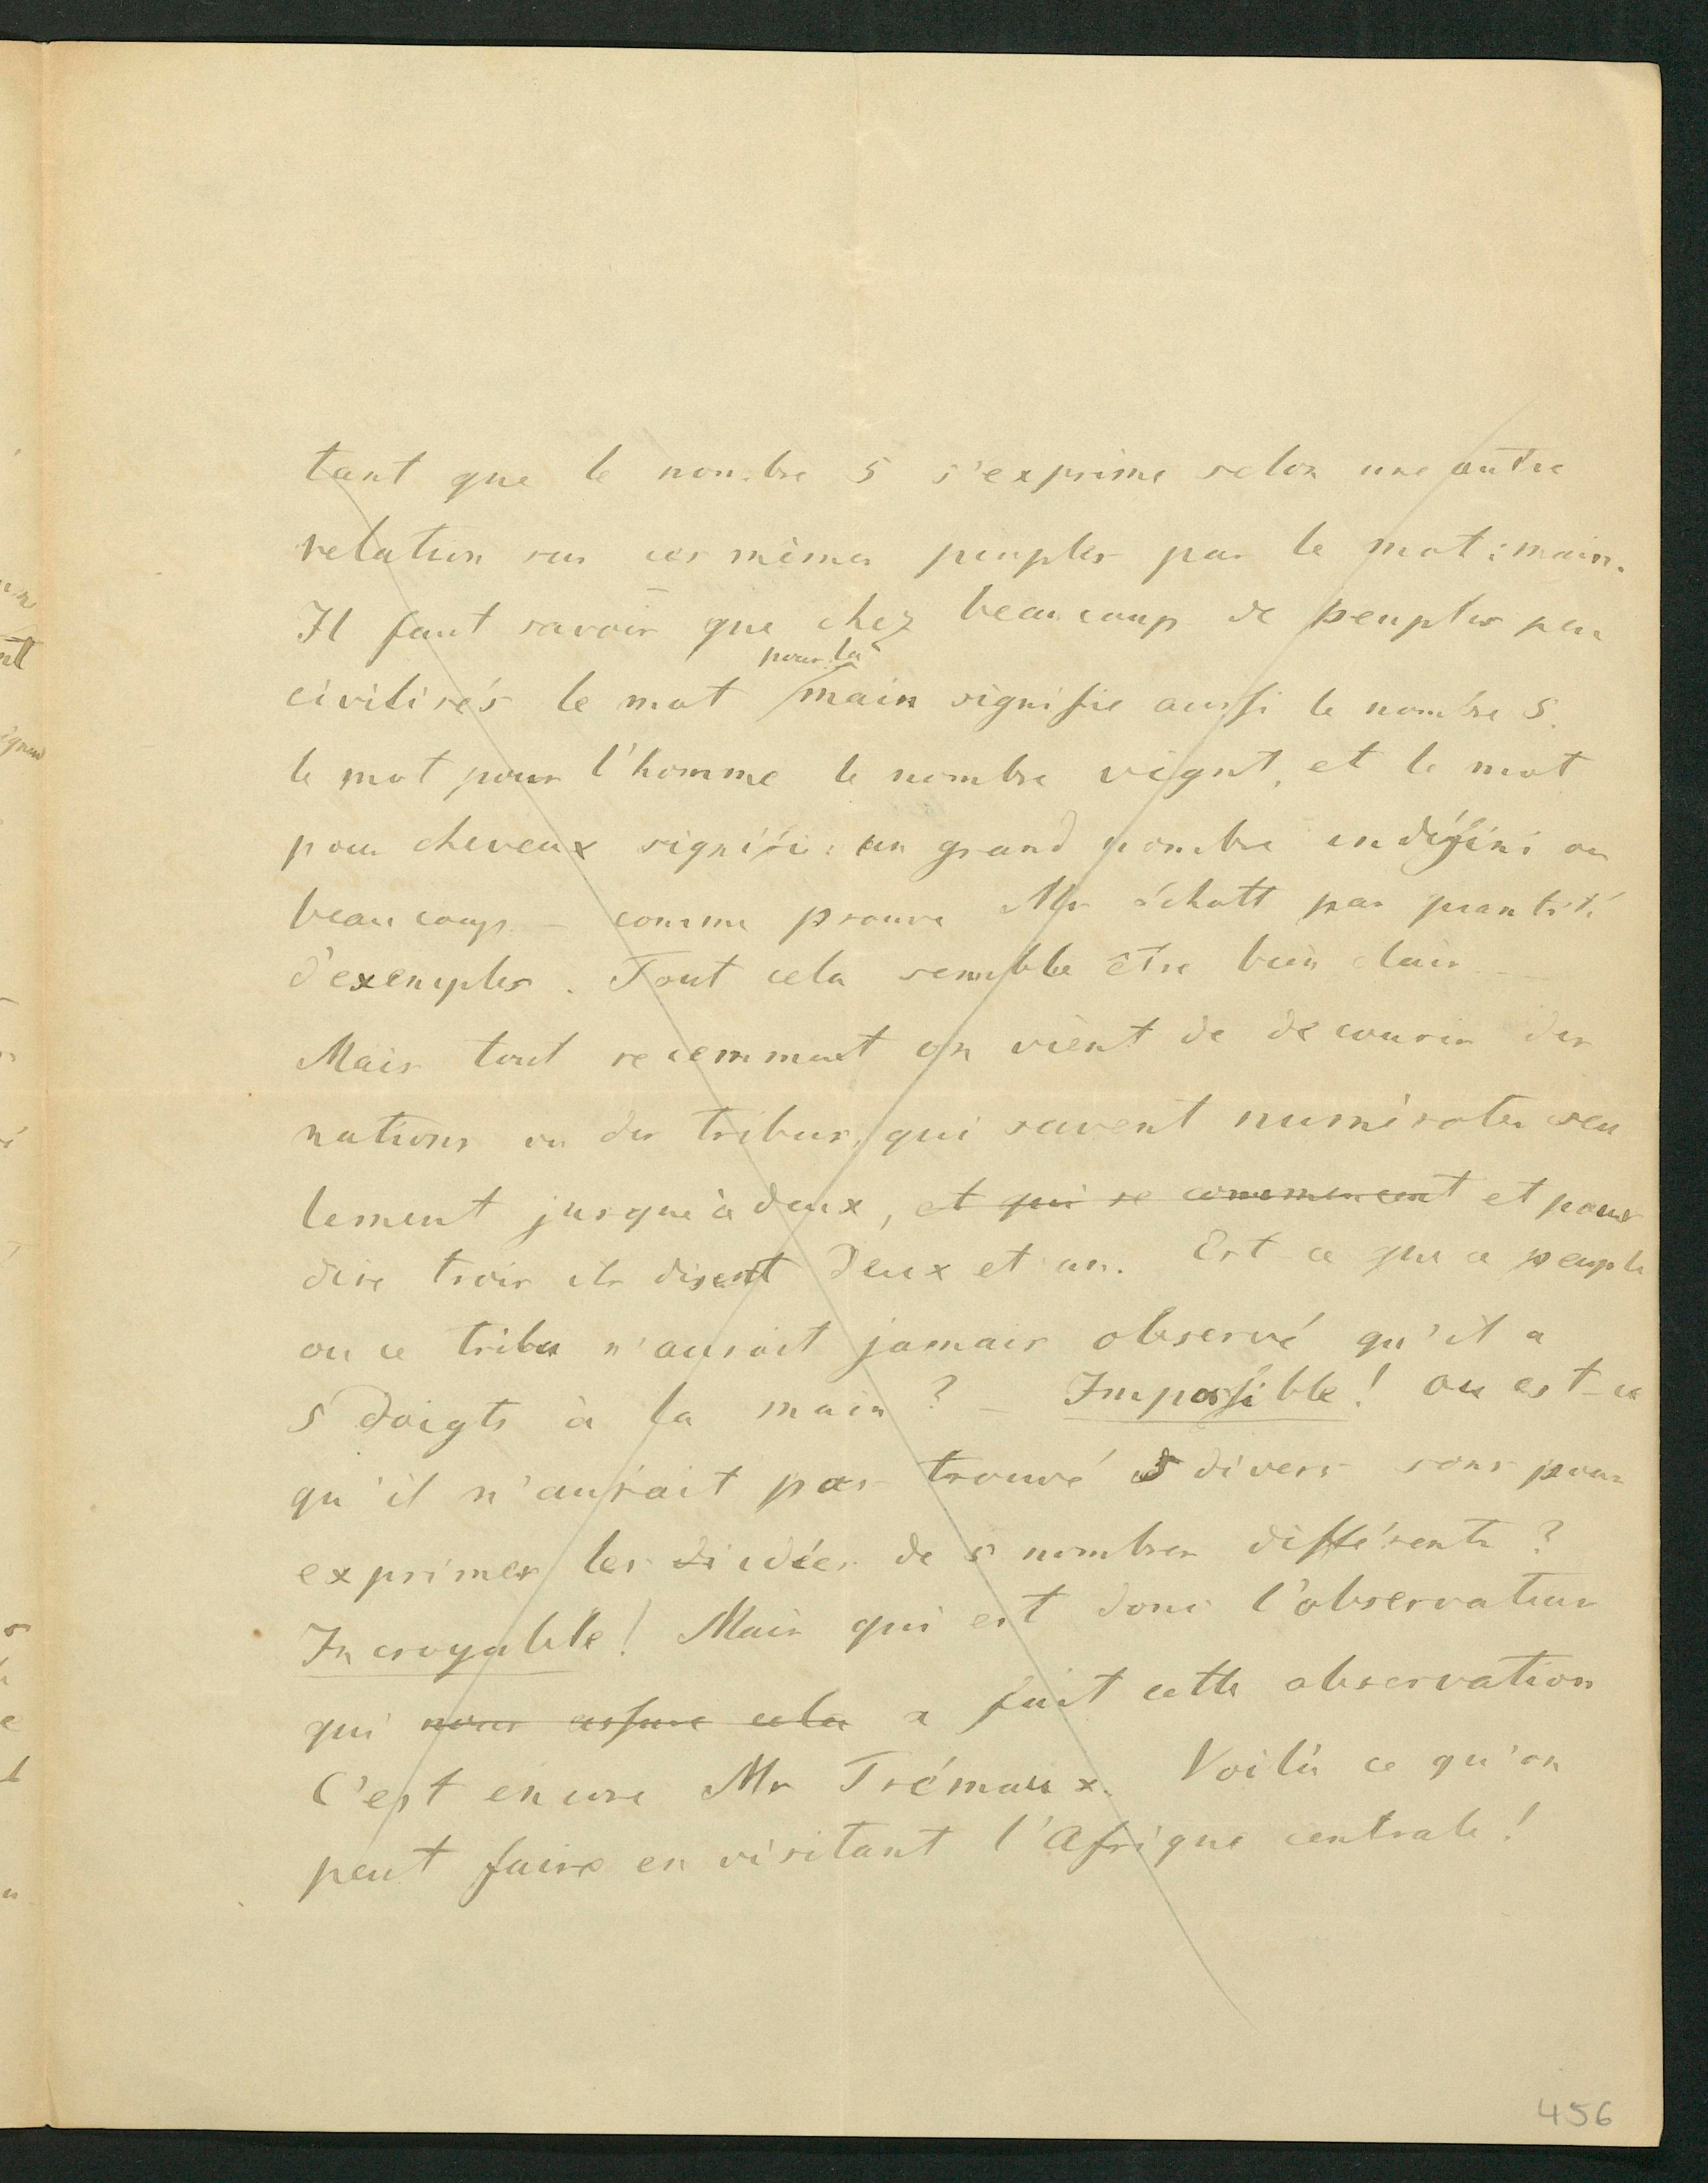 tant que le nombre 5 s'exprime selon une autre
relation sur ces mêmes peuples par le mot: main.
Il faut savoir que chez beaucoup de peuples peu
pour la
civilisés le mot main signifie aussi le nombre 5.
le mot pour l'homme le nombre vignt, et le mot
pour cheveux signifie: un grand nombre indéfini ou
beaucoup – comme prouve Mr Schott par quantité
d'exemples. Tout cela semble être bien clair –
Mais tout recemment on vient de decouvrir des
nations ou des tribus, qui savent numéroter seu
lement jusque à deux, et qui se commencent et pour
dire trois ils disent deux et un. Est-ce que ce peuple
ou ce tribu n'auroit jamais observé qu'il a
5 doigts à la main? – Impossible! ou est-ce
qu'il n'aurait pas trouvé 5 divers sons pour
exprimer les di idées de 5 nombres différents?
Incroyable! Mais qui est donc l'observateur
qui nous assure cela a fait cette observation
C'est encore Mr Trémaux. Voilà ce qu'on
peut faire en visitant l'Afrique centrale!
456